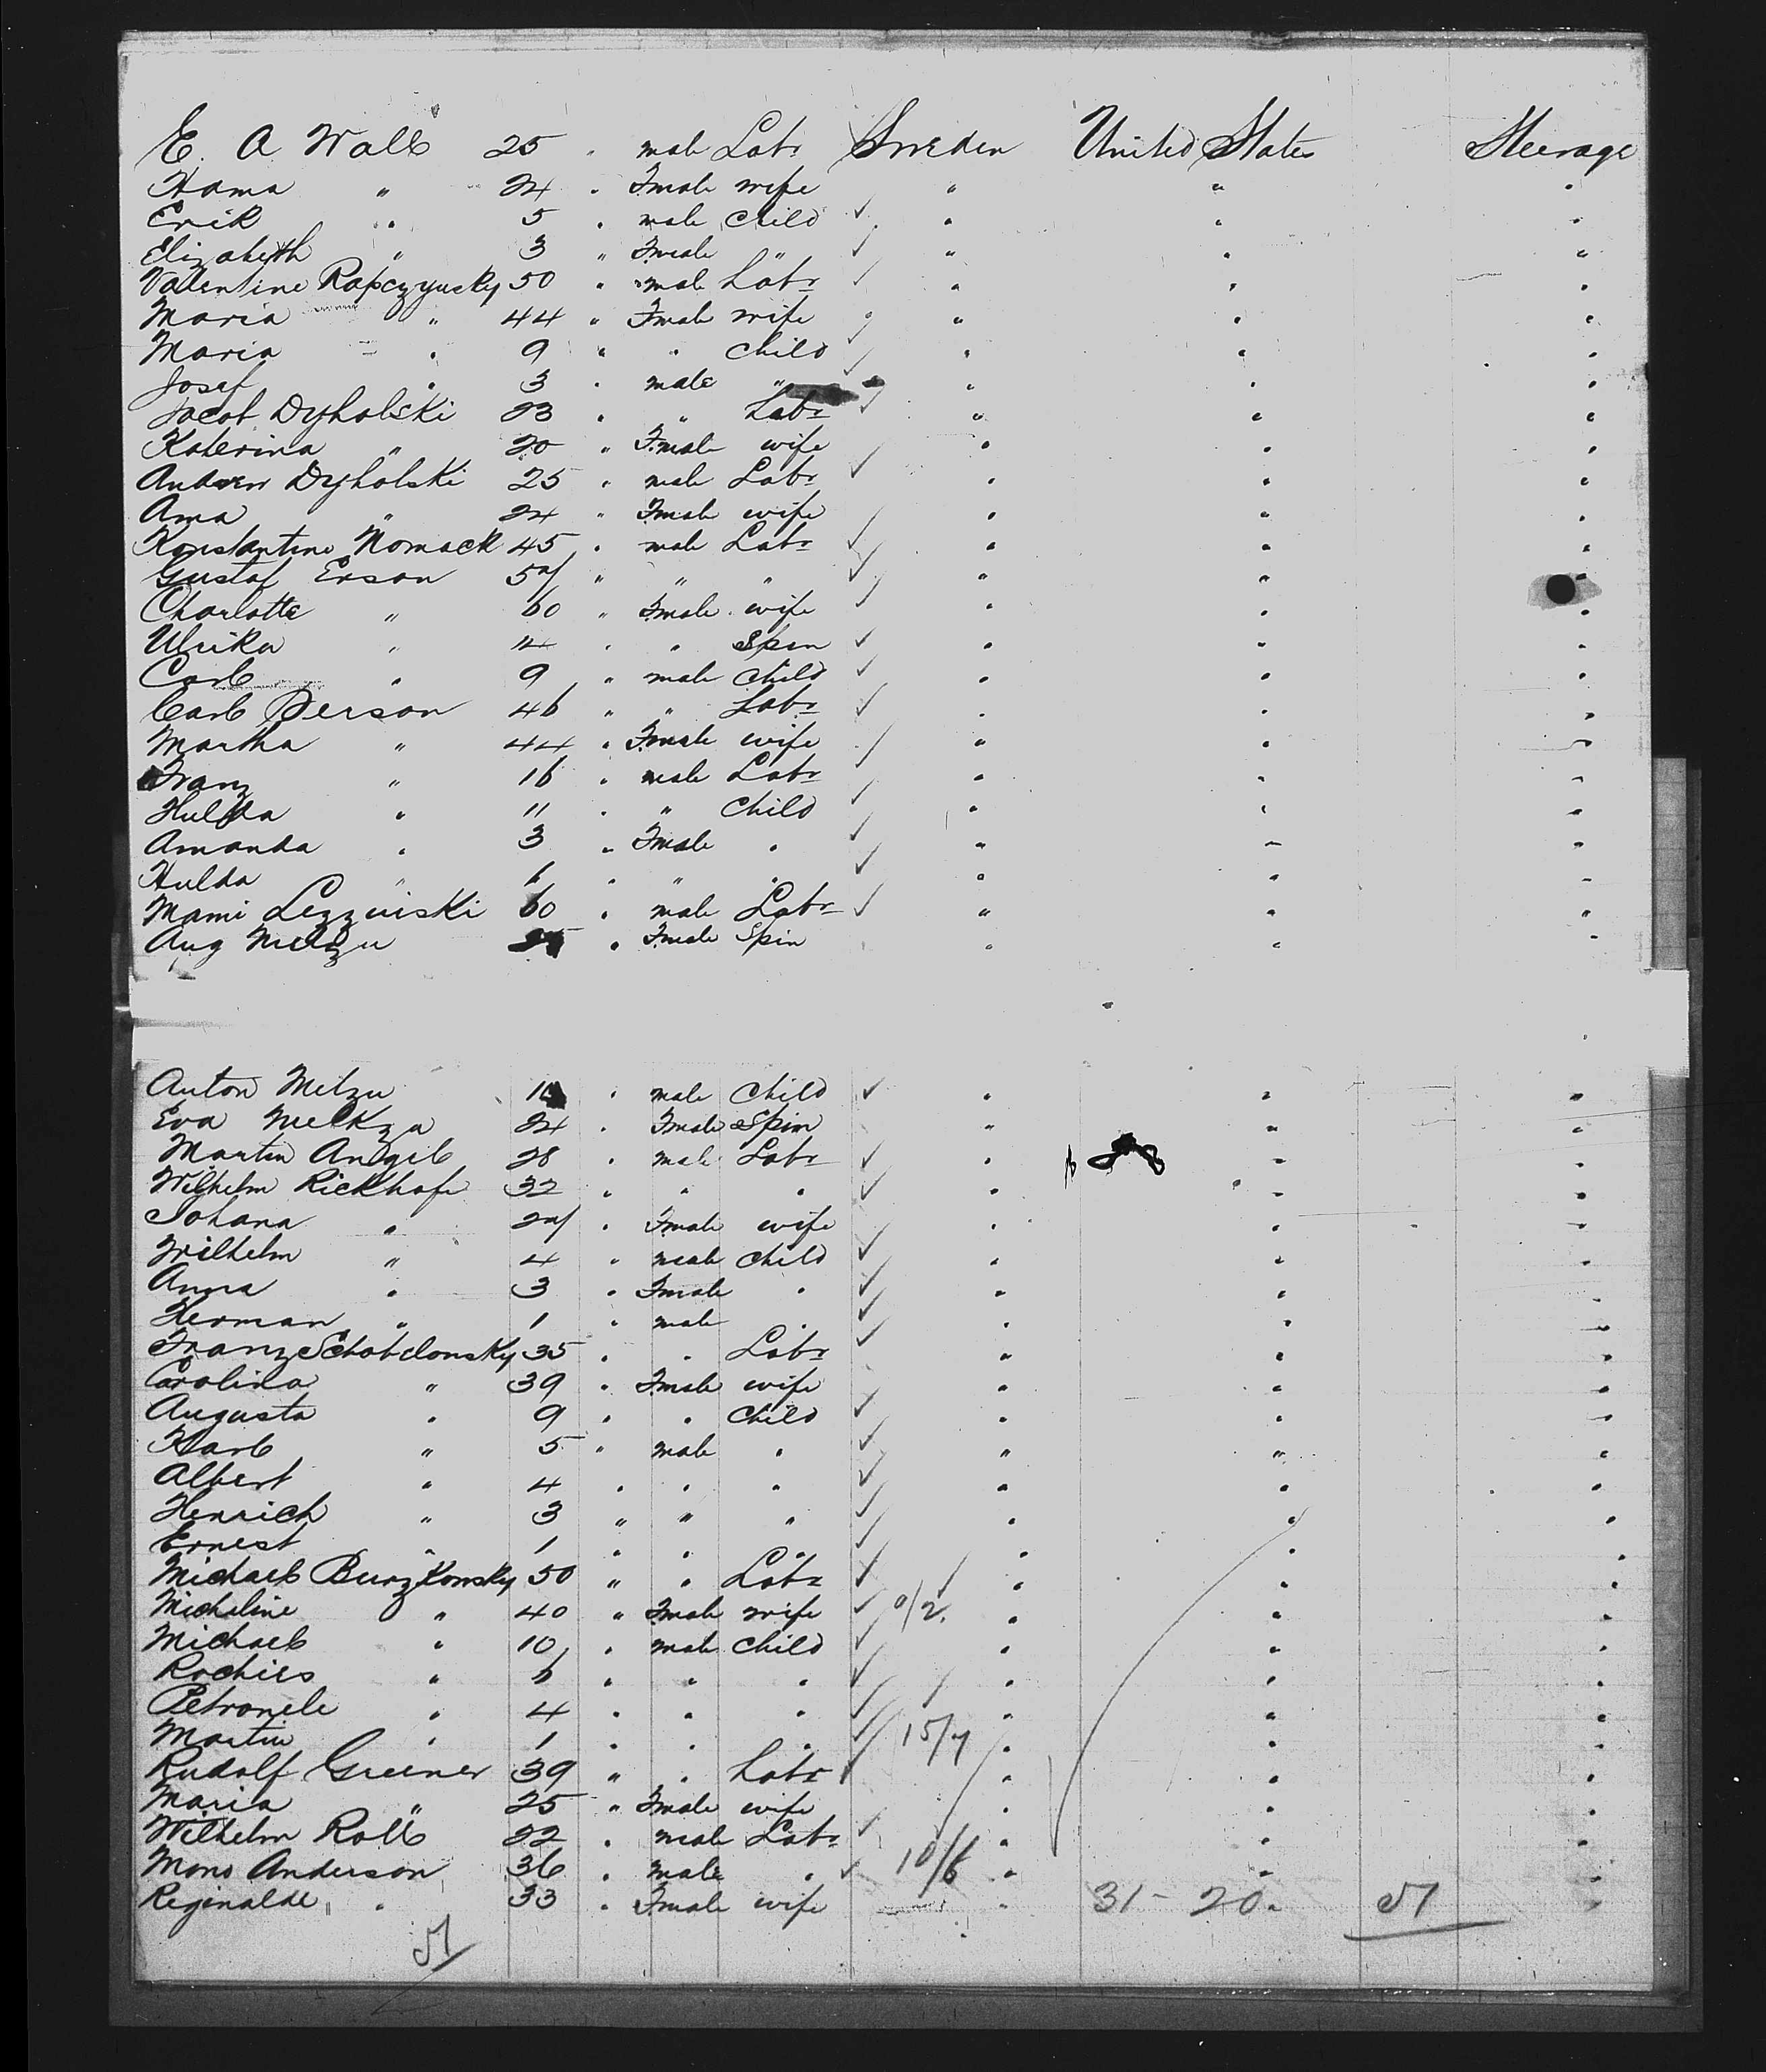 E. A Wall 25 " male Labr Sweden United States Steerage
Hama " 24 " Fmale wife " " "
Erik " 5 " male Child " " "
Elizabeth " 3 " Fmale " " " "
Vallentine Rapczynsky 50 " male Labr " " "
Maria " 44 " Fmale wife " " "
Maria " 9 " " Child " " "
Josef " 3 " male " " " "
Jacob Dyholski 23 " " Labr " " "
Katerina " 20 " Fmale wife " " "
Andrew Dyholski 25 " male Labr " " "
Anna " 24 " Fmale wife " " "
Konstantine Nomack 45 " male Labr " " "
Gustaf Erson 57 " " " " " "
Charlotte " 60 " Fmale wife " " "
Ulrika " " " Spin " " "
Carl " 9 " male Child " " "
Carl Person 46 " " Labr " " "
Martha " 44 " Fmale wife " " "
Franz " 16 " male Labr " " "
Hulda " 11 " " Child " " "
Amanda " 3 " Fmale " " " "
Hulda " " " " " " "
Mami Lezzwiski 60 " male Labr " " "
Aug " Fmale Spin " " "
Anton Metzu " male Child " " "
Eva Melkza 24 " Fmale Spin " " "
Martin Angel 28 " male Labr " " "
Wilhelm Rickhofe 32 " " " " " "
Johana " 27 " Fmale wife " " "
Wilhelm " 4 " male Child " " "
Anna " 3 " Fmale " " " "
Herman " 1 " male " " " "
Franz Schobdonsky 35 " " Labr " " "
Carolina " 39 " Fmale wife " " "
Augusta " 9 " " Child " " "
Karl " 5 " male " " " "
Albert " 4 " " " " " "
Henrich " 3 " " " " " "
Ernest " 1 " " " " " "
Michael Burzkonsky 50 " " Labr " " "
Micheline " 40 " Fmale wife 0/2 " " "
Michael " 10 " male Child " " "
Rochies " 6 " " " " " "
Petronele " 4 " " " " " "
Martin " 1 " " " 15/7 " " "
Rudolf Greener 39 " " Labr " " "
Maria " 25 " Fmale wife " " "
Wilhelm Roll 22 " male Labr " " "
Mons Anderson 36 " male " 10/6 " " "
Reginalde " 33 " Fmale wife " 31 - 20 " 51 "
51